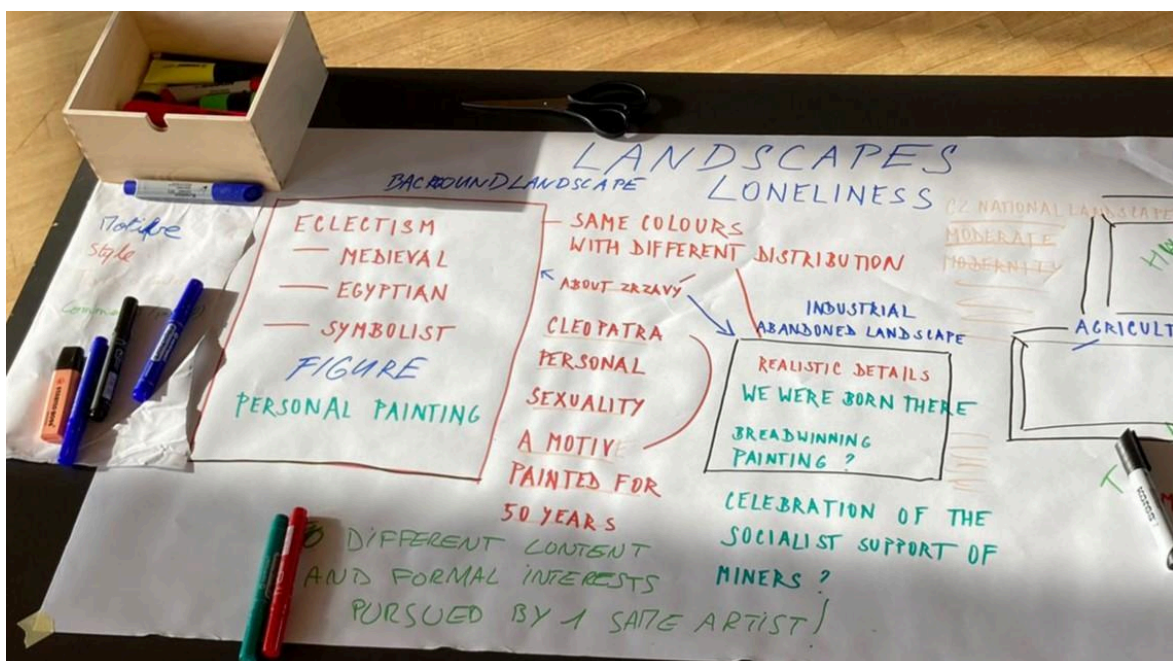 LANDSCAPES
LONELINESS
BACKOUNDLANDSCAPE
Motive
Style
ECLECTISM
— MEDIEVAL
— EGYPTIAN
— SYMBOLIST
FIGURE
PERSONAL PAINTING
— SAME COLOURS
WITH DIFFERENT DISTRIBUTION
ABOUT ZRZAVY
CLEOPATRA
PERSONAL
SEXUALITY
A MOTIVE
PAINTED FOR
50 YEARS
INDUSTRIAL
ABANDONED LANDSCAPE
REALISTIC DETAILS
WE WERE BORN THERE
BREADWINNING
PAINTING ?
CELEBRATION OF THE
SOCIALIST SUPPORT OF
MINERS ?
CZ NATIONAL LANDSCAPE
MODERATE
MODERNITY
AGRICULT
DIFFERENT CONTENT
AND FORMAL INTERESTS
PURSUED BY 1 SAME ARTIST!